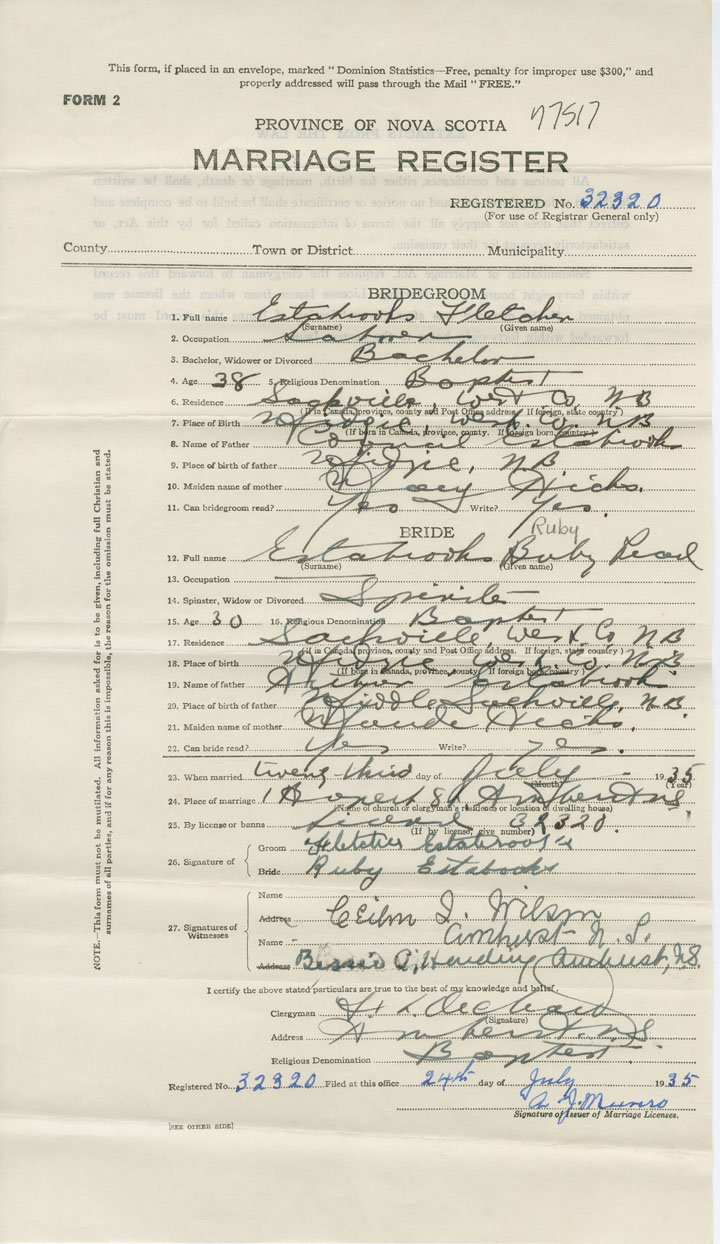 This form, if placed in an envelope, marked "Dominion Statistics—Free, penalty for improper use $300," and
properly addressed will pass through the Mail "FREE."
FORM 2
77517
PROVINCE OF NOVA SCOTIA
MARRIAGE REGISTER
REGISTERED No. 32320
(For use of Registrar General only)
County Town or District Municipality
BRIDEGROOM
1. Full name Estabrooks Fletcher
(Surname) (Given name)
2. Occupation Labourer
3. Bachelor, Widower or Divorced Bachelor
4. Age 38 5. Religious Denomination Baptist
6. Residence Sackville, West. Co. N B
(If in Canada, province, county and Post Office address. If foreign, state country)
7. Place of Birth Midgic, West. Co. N B
(If born in Canada, province, county. If foreign born, country)
8. Name of Father Estabrooks
9. Place of birth of father Midgic, N B
10. Maiden name of mother Hicks.
11. Can bridegroom read? Yes Write? Yes.
BRIDE Ruby
12. Full name Estabrooks Ruby Pearl
(Surname) (Given name)
13. Occupation
14. Spinster, Widow or Divorced Spinster
15. Age 30 16. Religious Denomination Baptist
17. Residence Sackville, West. Co. N B
(If in Canada, province, county and Post Office address. If foreign, state country)
18. Place of birth Midgic West. Co. N B
(If born in Canada, province, county. If foreign born, country)
19. Name of father Arthur Estabrooks
20. Place of birth of father Middle Sackville, N B
21. Maiden name of mother Maude Hicks.
22. Can bride read? Yes Write? Yes.
23. When married twenty-third day of July 1935
(Month) (Year)
24. Place of marriage Amherst N S
(Name of church or clergyman's residence or location of dwelling house)
25. By license or banns License 32320.
(If by license, give number)
26. Signature of Groom Fletcher Estabrooks
Bride Ruby Estabooks
27. Signatures of Witnesses
Name
Address Wilson
Name Amherst N.S.
Address Bessie A. Harding Amherst, N.S.
I certify the above stated particulars are true to the best of my knowledge and belief.
Clergyman Orchard
(Signature)
Address Amherst, N.S.
Religious Denomination Baptist.
Registered No. 32320 Filed at this office 24th day of July 1935
A. J. Munro
Signature of Issuer of Marriage Licenses.
[SEE OTHER SIDE]
NOTE.—This form must not be mutilated. All information asked for is to be given, including full Christian and
surnames of all parties, and if for any reason this is impossible, the reason for the omission must be stated.